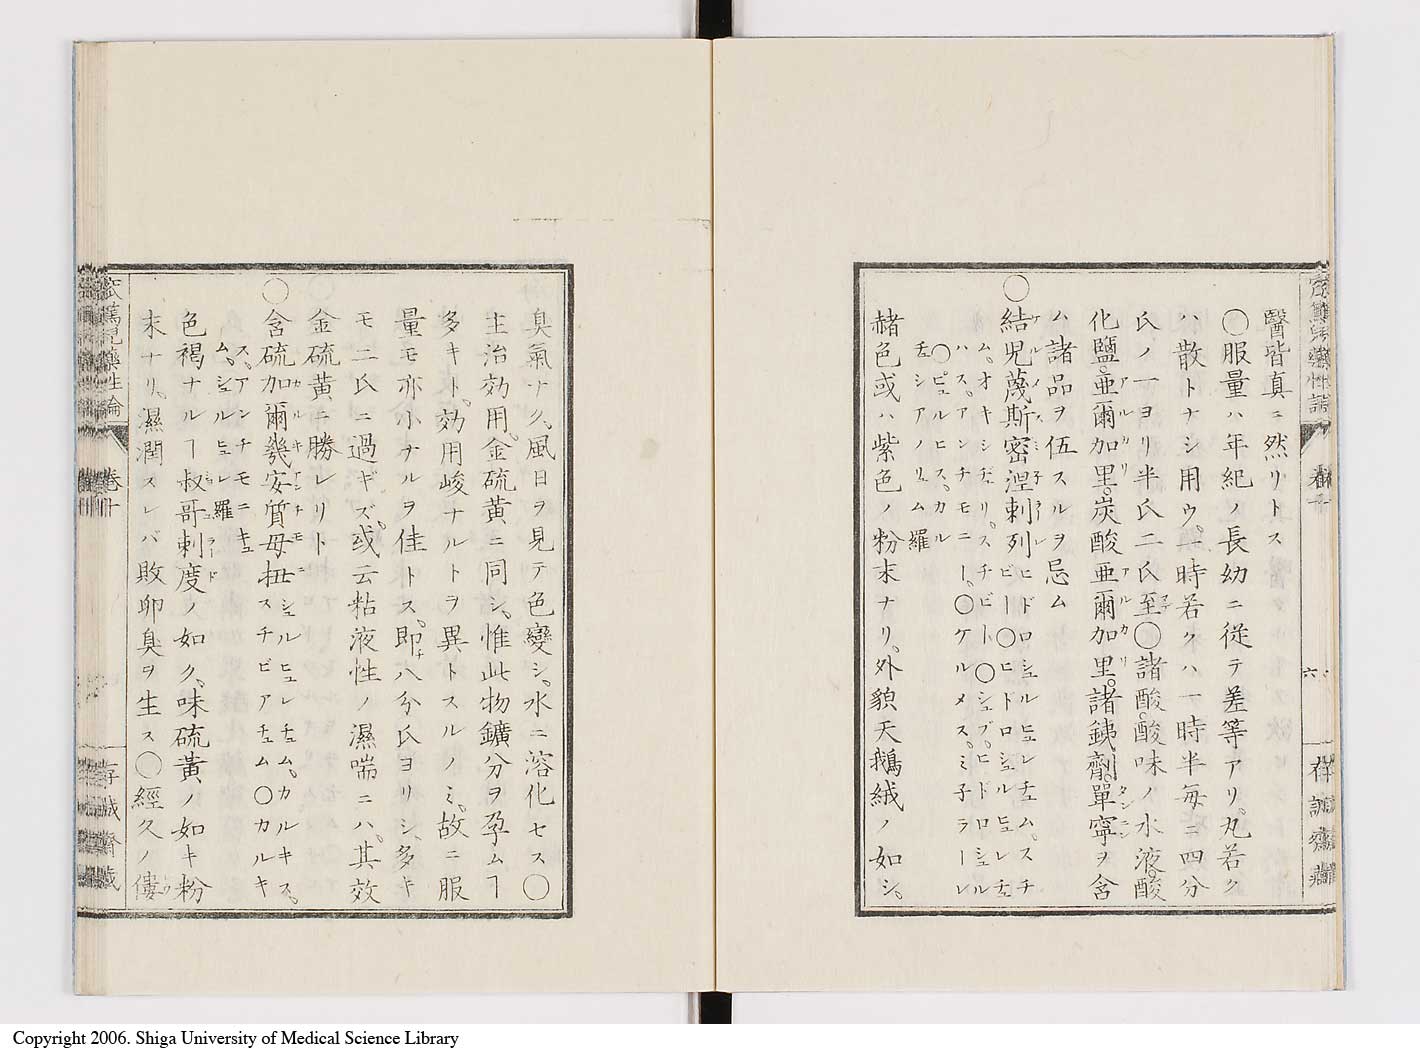 醫皆真ニ然リトス
〇服量ハ年紀ノ長幼ニ従テ差等アリ。丸若ク
ハ散トナシ用ウ。時若クハ一時半毎ニ四分
氏ノ一ヨリ半氏二氏至〇諸酸。酸味ノ水液。酸
化鹽。亜爾加里。炭酸亜爾加里。諸銕劑。單寧ヲ含
ハ諸品ヲ伍スルヲ忌ム
〇結児蔑斯密涅刺列ヒドロシュルヒュレチュム。スチ
ビー〇ヒドロシュルヒュレチュ
ム。オキシヂリ。スチビト〇シュブヒドロシュル
ハス。アンチモニー。〇ケルメス。ミ子ラーレ
〇ピュルヒス。カル
チュシアノリュム羅
赭色或ハ紫色ノ粉末ナリ。外貌天鵝絨ノ如シ。
臭氣ナク。風日ヲ見テ色變シ。水ニ溶化セス〇
主治効用。金硫黄ニ同シ。惟此物鑛分ヲ孕ムヿ
多キト。効用峻ナルトヲ異トスルノミ。故ニ服
量モ亦小ナルヲ佳トス。即八分氏ヨリシ。多キ
モ二氏ニ過ギズ。或云粘液性ノ濕喘ニハ。其效
金硫黄ニ勝レリト
〇含硫加爾幾安質母扭スシュルヒュレチュム。カルキス。
スチビアチュム〇カルキ
ス。アンチモニキュ
ム。シュルヒュレ羅
色褐ナルヿ叔哥刺度ノ如ク。味硫黄ノ如キ粉
末ナリ。濕潤スレバ敗卵臭ヲ生ス〇經久ノ僂
卷十
六
Copyright 2006. Shiga University of Medical Science Library